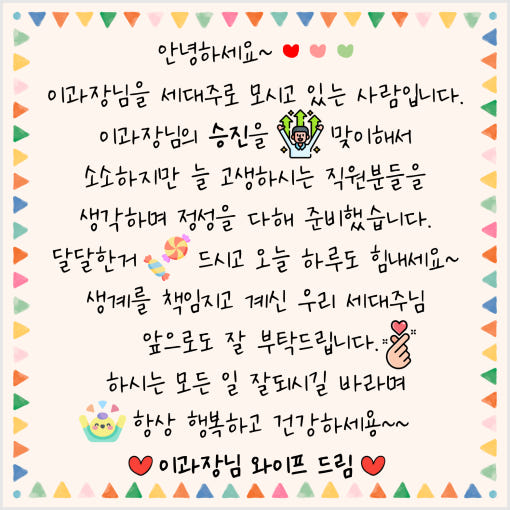 안녕하세요~
이과장님을 세대주로 모시고 있는 사람입니다.
이과장님의 승진을 맞이해서
소소하지만 늘 고생하시는 직원분들을
생각하며 정성을 다해 준비했습니다.
달달한거 드시고 오늘 하루도 힘내세요~
생계를 책임지고 계신 우리 세대주님
앞으로도 잘 부탁드립니다.
하시는 모든 일 잘되시길 바라며
항상 행복하고 건강하세용~~
이과장님 와이프 드림